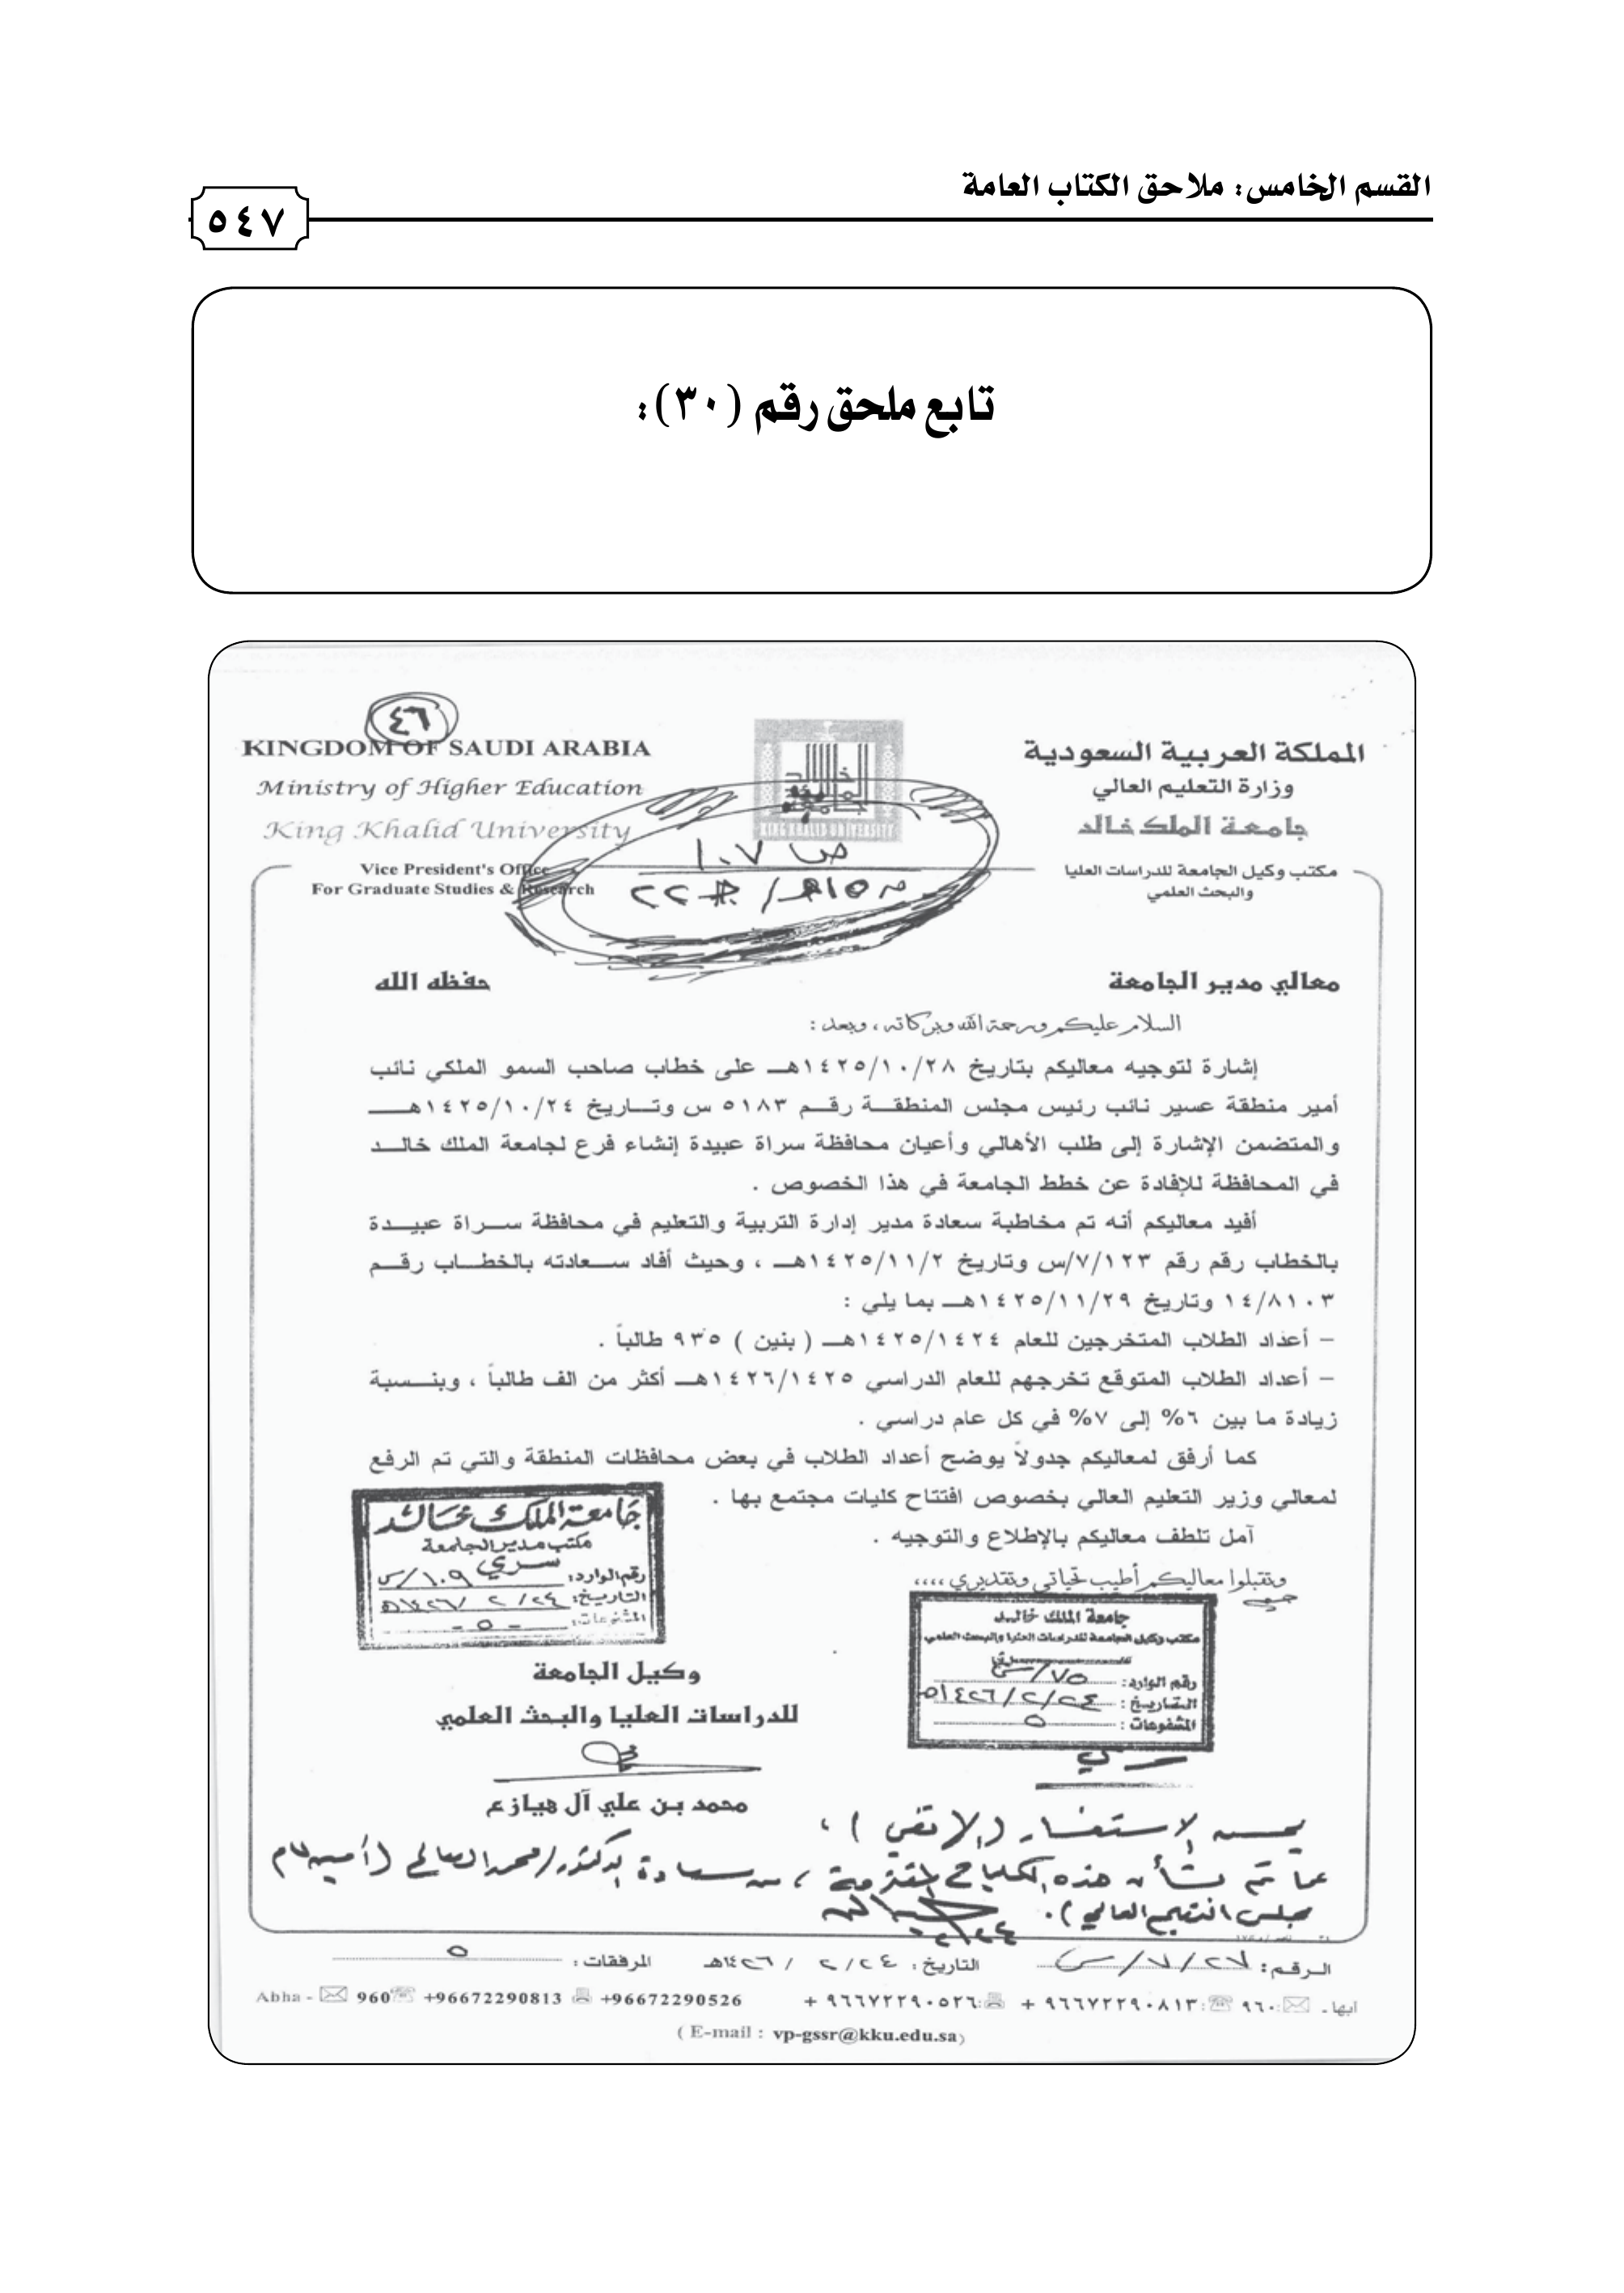 القسم الخامس: ملاحق الكتاب العامة
٥٤٧
تابع ملحق رقم (٣٠):
٤٦
KINGDOM OF SAUDI ARABIA
Ministry of Higher Education
King Khalid University
Vice President's Office
For Graduate Studies & Research
KING KHALID UNIVERSITY
المملكة العربية السعودية
وزارة التعليم العالي
جامعة الملك خالد
مكتب وكيل الجامعة للدراسات العليا
والبحث العلمي
ص ١٠٧
معالي مدير الجامعة حفظه الله
السلام عليكم ورحمة الله وبركاته ، وبعد :
إشارة لتوجيه معاليكم بتاريخ ١٤٢٥/١٠/٢٨هـ على خطاب صاحب السمو الملكي نائب
أمير منطقة عسير نائب رئيس مجلس المنطقة رقم ٥١٨٣ س وتاريخ ١٤٢٥/١٠/٢٤هـ
والمتضمن الإشارة إلى طلب الأهالي وأعيان محافظة سراة عبيدة إنشاء فرع لجامعة الملك خالد
في المحافظة للإفادة عن خطط الجامعة في هذا الخصوص .
أفيد معاليكم أنه تم مخاطبة سعادة مدير إدارة التربية والتعليم في محافظة سراة عبيدة
بالخطاب رقم رقم ٧/١٢٣/س وتاريخ ١٤٢٥/١١/٢هـ ، وحيث أفاد سعادته بالخطاب رقم
١٤/٨١٠٣ وتاريخ ١٤٢٥/١١/٢٩هـ بما يلي :
– أعداد الطلاب المتخرجين للعام ١٤٢٥/١٤٢٤هـ ( بنين ) ٩٣٥ طالباً .
– أعداد الطلاب المتوقع تخرجهم للعام الدراسي ١٤٢٦/١٤٢٥هـ أكثر من الف طالباً ، وبنسبة
زيادة ما بين ٦% إلى ٧% في كل عام دراسي .
كما أرفق لمعاليكم جدولاً يوضح أعداد الطلاب في بعض محافظات المنطقة والتي تم الرفع
لمعالي وزير التعليم العالي بخصوص افتتاح كليات مجتمع بها .
آمل تلطف معاليكم بالإطلاع والتوجيه .
وتقبلوا معاليكم أطيب تحياتي وتقديري ،،،،
جامعة الملك خالد
مكتب مدير الجامعة
سري
رقم الوارد: ١٠٩/س
التاريخ: ٢٤/ ٢ /١٤٢٦هـ
المشفوعات: - ٥ -
جامعة الملك خالد
مكتب وكيل الجامعة للدراسات العليا والبحث العلمي
رقم الوارد: ٧٥/س
التاريخ : ٢٤/٢/١٤٢٦هـ
المشفوعات : ٥
سري
وكيل الجامعة
للدراسات العليا والبحث العلمي
محمد بن علي آل هيازع
يحسن الاستفسار (الاتفي) ،
عما تم بشأن هذه الكليات المقترحة ، من سعادة الدكتور/محمد الصالح (أمين عام
مجلس التعليم العالي).
٢/٢٤
الرقم: ٢٧/ ٧/س التاريخ: ٢٤/ ٢ / ١٤٢٦هـ المرفقات : ٥
ابها ـ ٩٦٠ : ٩٦٦٧٢٢٩٠٨١٣ + : ٩٦٦٧٢٢٩٠٥٢٦ +
Abha - 960 +96672290813 +96672290526
( E-mail : vp-gssr@kku.edu.sa)